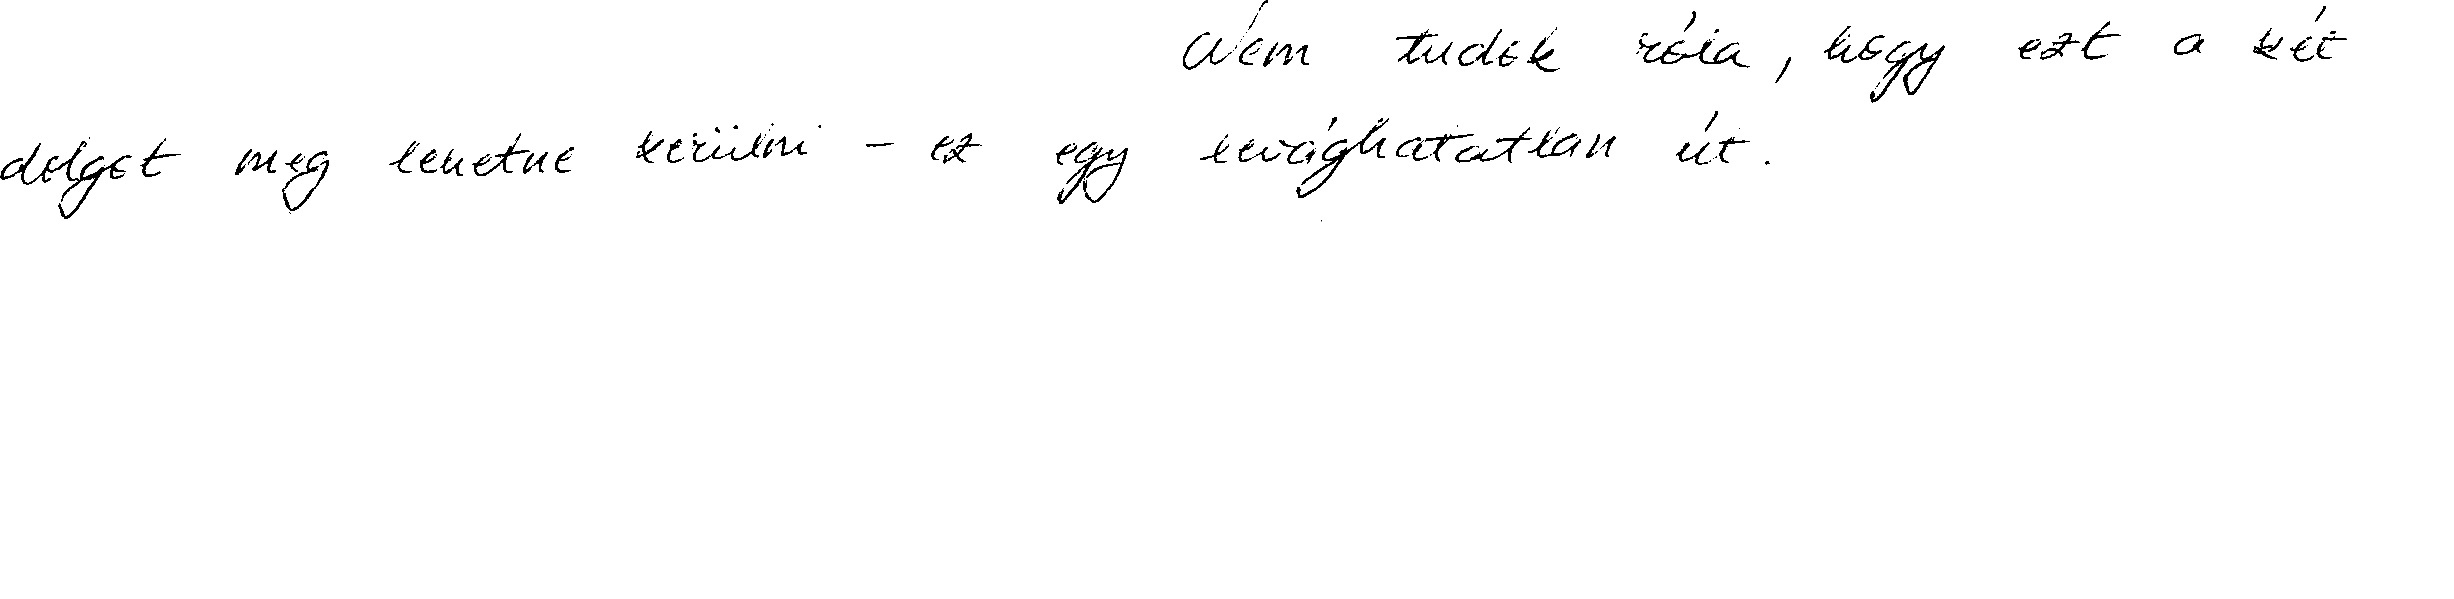 Nem tudok róla, hogy ezt a két
dolgot meg lehetne kerülni – ez egy levághatatlan út.